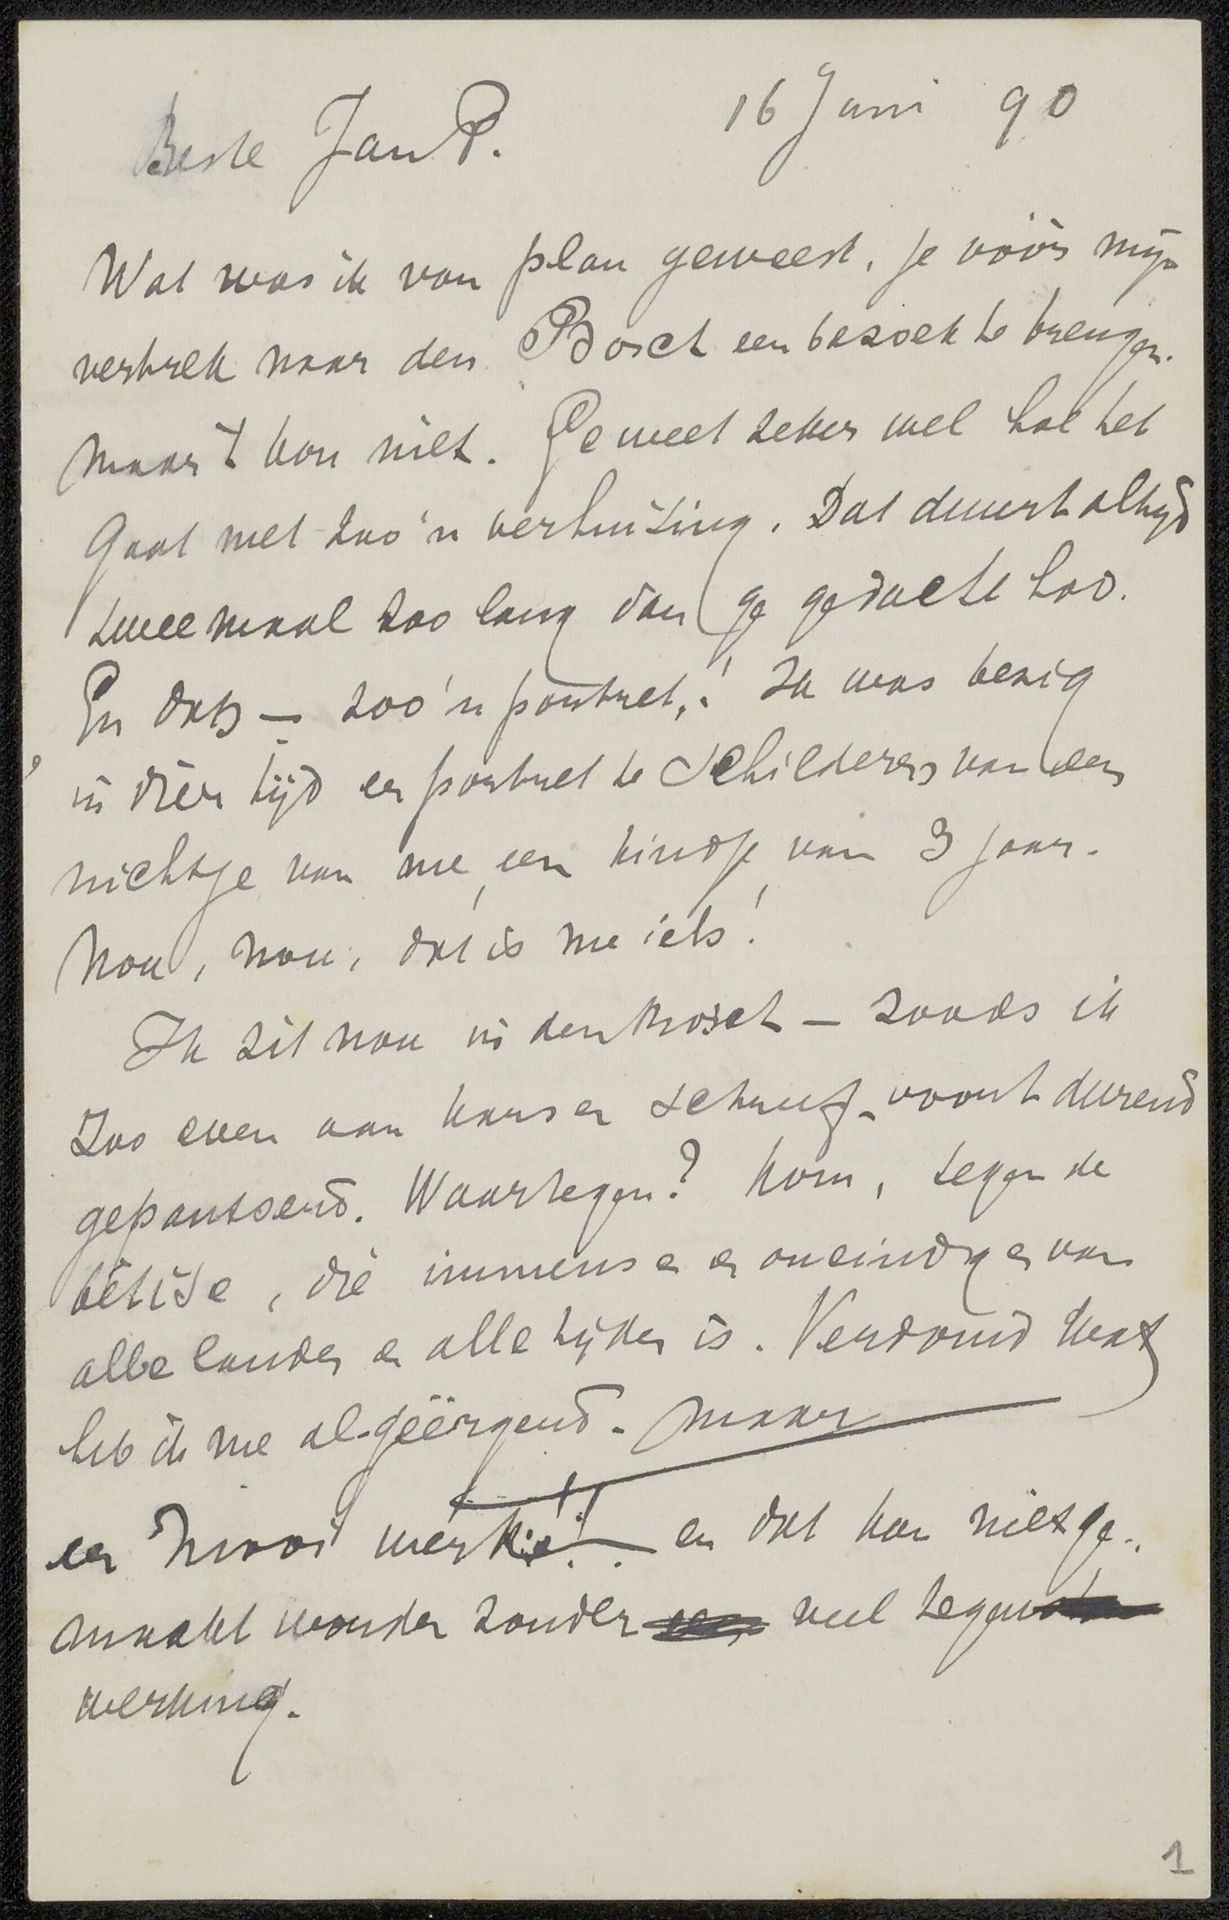 16 Juni 90
Beste Jan P.
Wat was ik van plan geweest, je vóór mijn
vertrek naar den Bosch een bezoek te brengen.
maar 't kon niet. Je weet zeker wel hoe het
gaat met zoo'n verhuizing. Dat duurt altijd
tweemaal zoo lang dan ge gedacht had.
En dan — zoo'n portret! Ik was bezig
in dien tijd een portret te schilderen van een
nichtje van me, een kindje van 3 jaar.
Nou, nou, dat is me iets!
Ik zit nou in den Bosch — zooals ik
zoo even aan schreef — voortdurend
gepantserd. Waartegen? Kom, tegen de
bêtise, die immense en oneindige van
alle landen en alle tijden is. Verdomd wat
heb ik me al geërgerd. maar
een mooi werkje!! — en dat kan niet ge-
maakt worden zonder veel tegen
werking.
1